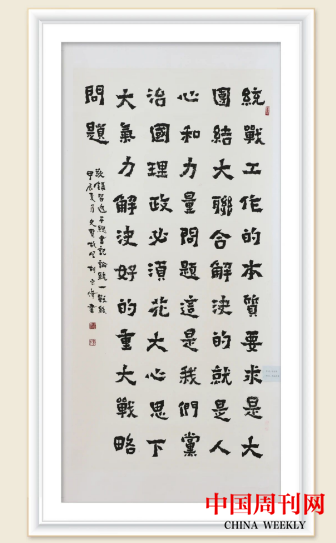 統戰工作的本質要求是大
團結大聯合解決的就是人
心和力量問題這是我們黨
治國理政必須花大心思下
大氣力解決好的重大戰略
問題
敬錄習近平總書記論
甲辰夏月
中国周刊网
CHINA WEEKLY